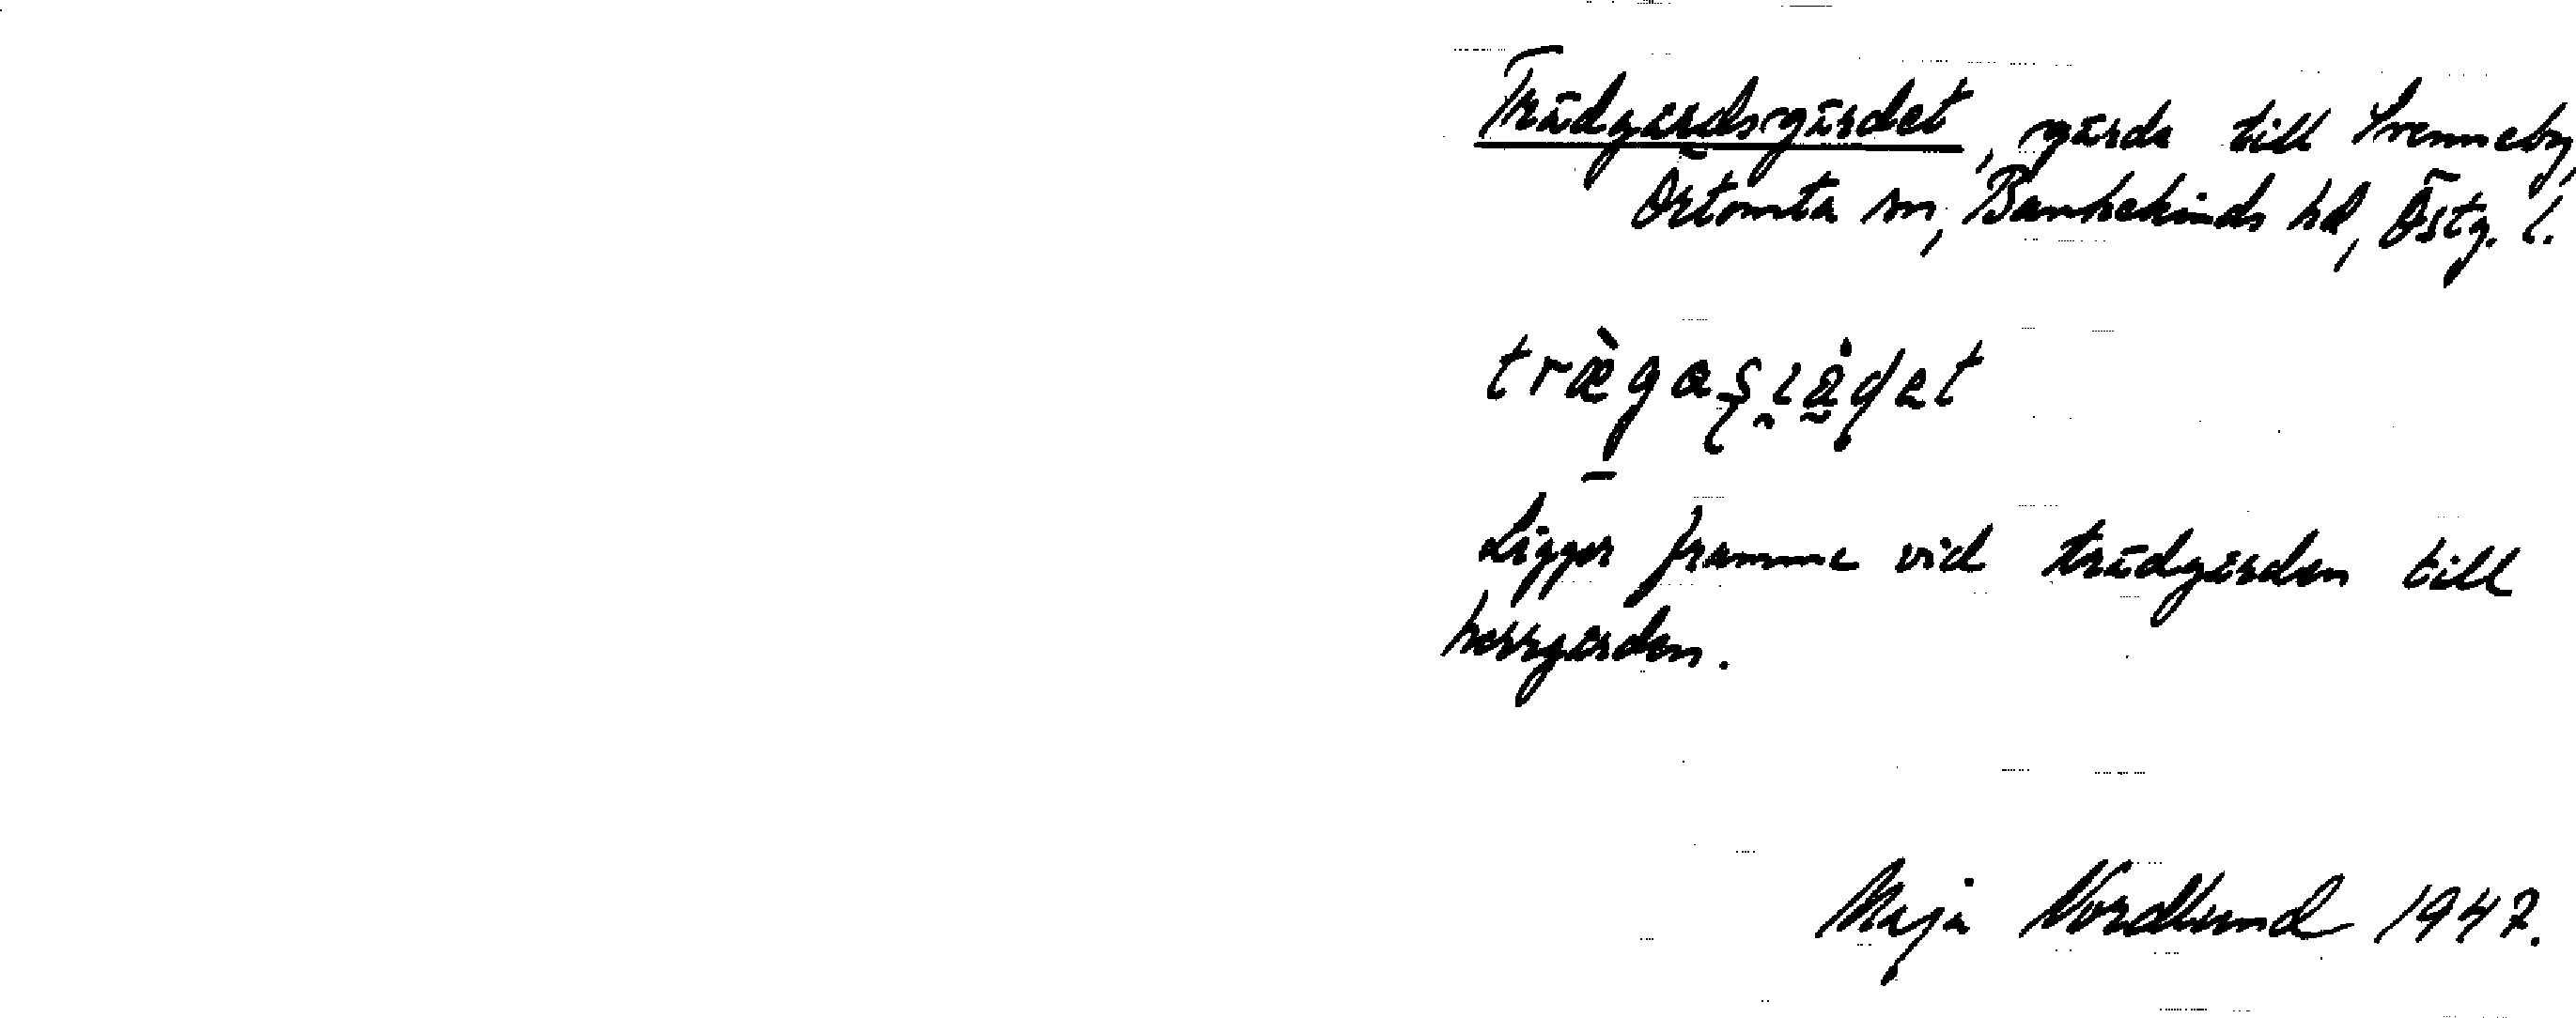 Trädgårdsgärdet, gärde till Svenneby,
Örtomta sn, Bankekinds hd, Östg. l.
Ligger framme vid trädgården till
herrgården.
Maja Nordlund 1947.